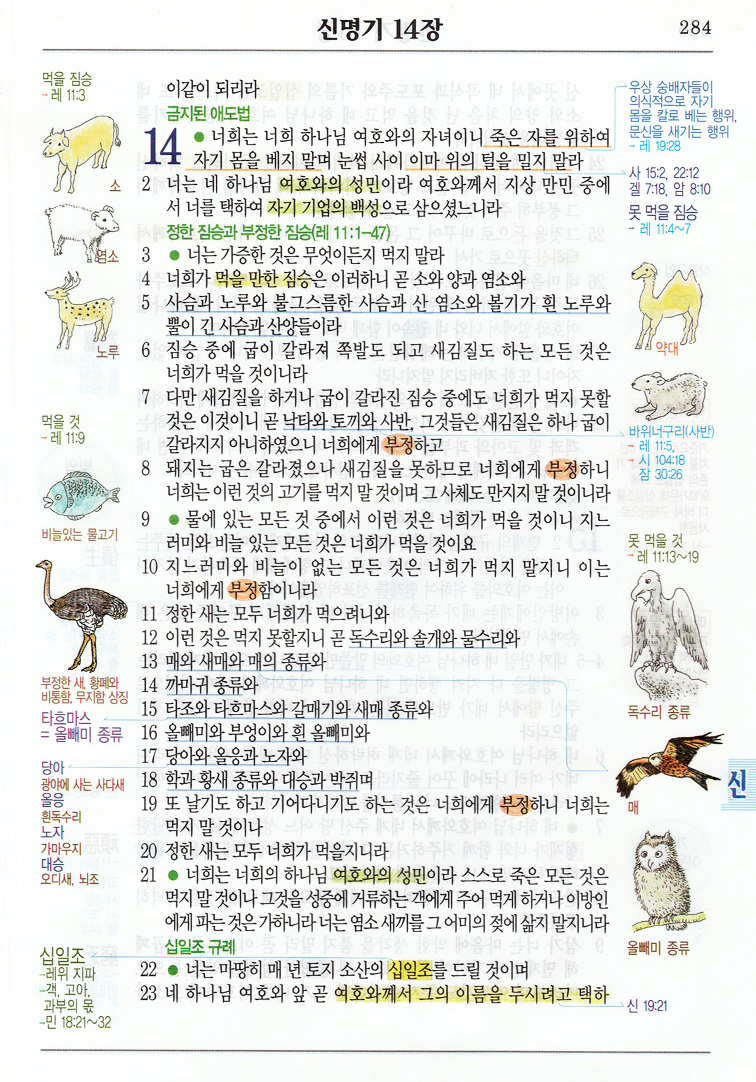 신명기 14장
284
먹을 짐승
→ 레 11:3
소
염소
노루
먹을 것
→ 레 11:9
비늘있는 물고기
부정한 새, 황폐와
비통함, 무지함 상징
타흐마스
= 올빼미 종류
당아
광야에 사는 사다새
올응
흰독수리
노자
가마우지
대승
오디새, 뇌조
십일조
→레위 지파
→객, 고아,
과부의 몫
→민 18:21~32
이같이 되리라
금지된 애도법
14 ● 너희는 너희 하나님 여호와의 자녀이니 죽은 자를 위하여
자기 몸을 베지 말며 눈썹 사이 이마 위의 털을 밀지 말라
2 너는 네 하나님 여호와의 성민이라 여호와께서 지상 만민 중에
서 너를 택하여 자기 기업의 백성으로 삼으셨느니라
정한 짐승과 부정한 짐승(레 11:1-47)
3 ● 너는 가증한 것은 무엇이든지 먹지 말라
4 너희가 먹을 만한 짐승은 이러하니 곧 소와 양과 염소와
5 사슴과 노루와 불그스름한 사슴과 산 염소와 볼기가 흰 노루와
뿔이 긴 사슴과 산양들이라
6 짐승 중에 굽이 갈라져 쪽발도 되고 새김질도 하는 모든 것은
너희가 먹을 것이니라
7 다만 새김질을 하거나 굽이 갈라진 짐승 중에도 너희가 먹지 못할
것은 이것이니 곧 낙타와 토끼와 사반, 그것들은 새김질은 하나 굽이
갈라지지 아니하였으니 너희에게 부정하고
8 돼지는 굽은 갈라졌으나 새김질을 못하므로 너희에게 부정하니
너희는 이런 것의 고기를 먹지 말 것이며 그 사체도 만지지 말 것이니라
9 ● 물에 있는 모든 것 중에서 이런 것은 너희가 먹을 것이니 지느
러미와 비늘 있는 모든 것은 너희가 먹을 것이요
10 지느러미와 비늘이 없는 모든 것은 너희가 먹지 말지니 이는
너희에게 부정함이니라
11 정한 새는 모두 너희가 먹으려니와
12 이런 것은 먹지 못할지니 곧 독수리와 솔개와 물수리와
13 매와 새매와 매의 종류와
14 까마귀 종류와
15 타조와 타흐마스와 갈매기와 새매 종류와
16 올빼미와 부엉이와 흰 올빼미와
17 당아와 올응과 노자와
18 학과 황새 종류와 대승과 박쥐며
19 또 날기도 하고 기어다니기도 하는 것은 너희에게 부정하니 너희는
먹지 말 것이나
20 정한 새는 모두 너희가 먹을지니라
21 ● 너희는 너희의 하나님 여호와의 성민이라 스스로 죽은 모든 것은
먹지 말 것이나 그것을 성중에 거류하는 객에게 주어 먹게 하거나 이방인
에게 파는 것은 가하니라 너는 염소 새끼를 그 어미의 젖에 삶지 말지니라
십일조 규례
22 ● 너는 마땅히 매 년 토지 소산의 십일조를 드릴 것이며
23 네 하나님 여호와 앞 곧 여호와께서 그의 이름을 두시려고 택하
우상 숭배자들이
의식적으로 자기
몸을 칼로 베는 행위,
문신을 새기는 행위
→ 레 19:28
사 15:2, 22:12
겔 7:18, 암 8:10
못 먹을 짐승
→ 레 11:4~7
약대
바위너구리(사반)
→ 레 11:5,
→ 시 104:18
잠 30:26
못 먹을 것
→ 레 11:13~19
독수리 종류
매
신
올빼미 종류
신 19:21